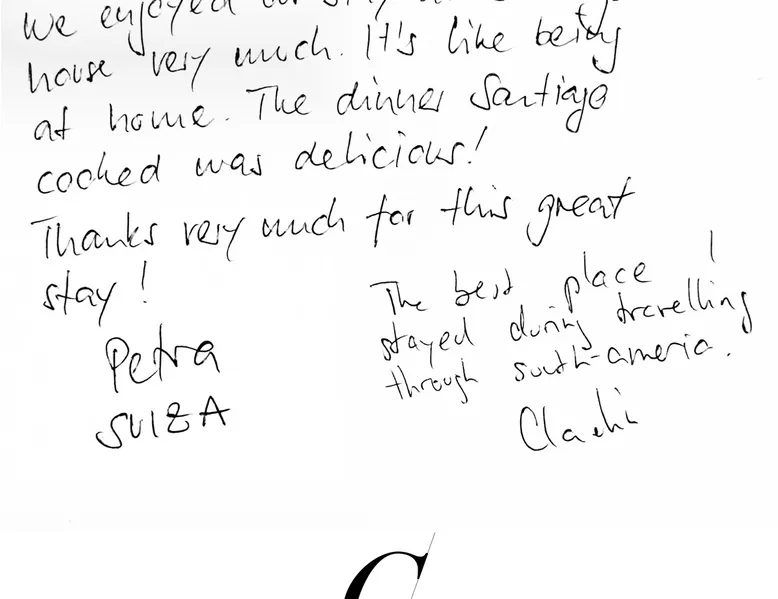 We enjoyed our stay
house very much. It's like being
at home. The dinner Santiago
cooked was delicious!
Thanks very much for this great
stay!
Petra
SUIZA
The best place I
stayed during travelling
through south-america.
C